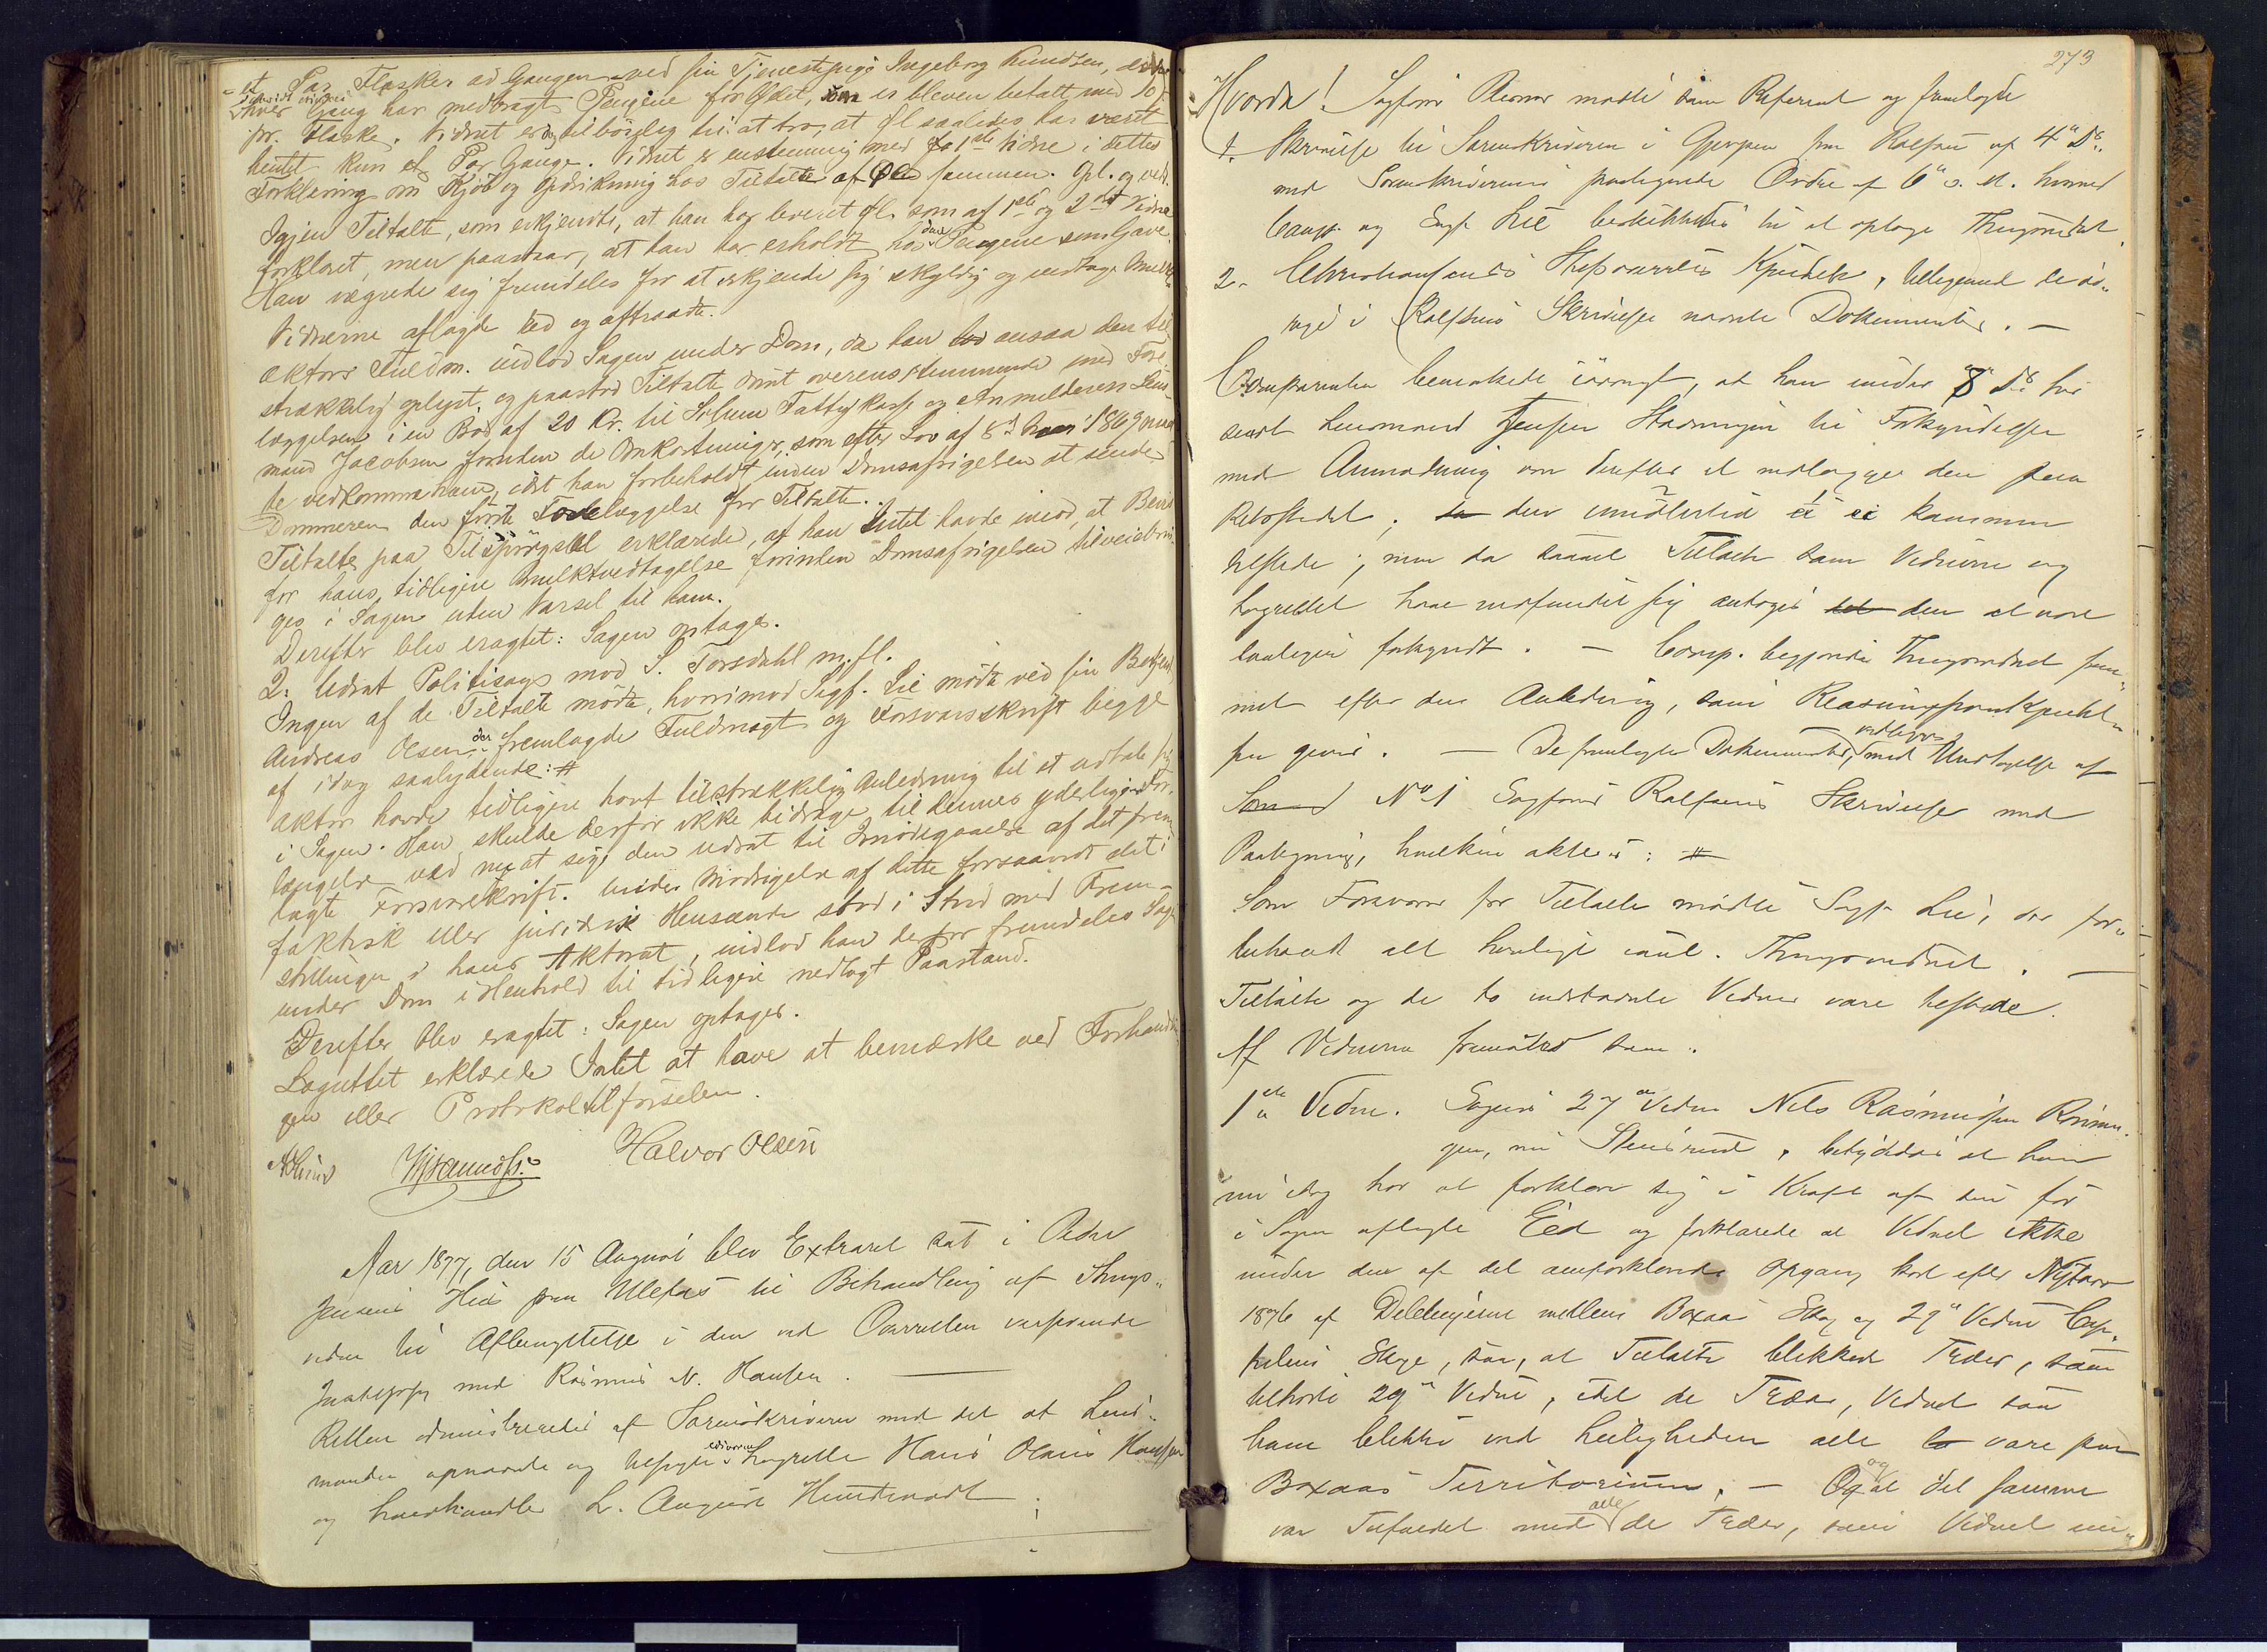 et Par Flasker ad Gangen ved sin Tjenestepige Ingeborg Knudsen, der
hver Gang har medbragt Pengene for Øllet, som er bleven betalt med 10 s
pr. Flaske. Vidnet er tilbøielig til at tro, at Øl saaledes har været
hentet kun et Par Gange. Vidnet er enstemmig med 1ste Vidne i dettes
Forklaring om Kjøb og Opdrikning hos Tiltalte af Øl sammen. Opl. og vedt.
Igjen Tiltalte, som erkjendte, at han har leveret Øl, som af 1ste og 2det Vidne
forklaret, men paastaar, at han har erholdt Pengene som Gave.
Han vægrede sig fremdeles for at erkjende sig skyldig og vedtage Mulkt.
Vidnerne aflagde Ed og aftraadte.
Aktors Fuldm. indlod Sagen under Dom, da han ansaa den til-
strækkelig oplyst, og paastod Tiltalte dømt overensstemmende med Fore-
læggelsen i en Bod af 20 Kr. til Solum Fattigkasse og Anmelderen Lens-
mand Jacobsen foruden de Omkostninger, som efter Lov af 1869 maa-
te vedkomme ham, idet han forbeholdt inden Domsafsigelsen at sende
Dommeren den første Forelæggelse for Tiltalte.
Tiltalte paa Tilspørgsel erklærede, at han Intet havde imod, at Bevis
for hans tidligere Mulktvedtagelse forinden Domsafsigelsen tilveiebrin-
ges i Sagen uden Varsel til ham.
Derefter blev eragtet: Sagen optages.
2. Udsat Politisag mod S. Torsdahl m. fl.
Ingen af de Tiltalte mødte, hvorimod Sagf. Lie mødte ved sin
Andreas Olsen, der fremlagde Fuldmagt og Forsvarsskrift begge
af idag saalydende: #
Aktor havde tidligere havt tilstrækkelig Anledning til at udtale sig
i Sagen. Han skulde derfor ikke bidrage til dennes yderligere For-
længelse ved nu at søge den udsat til Imødegaaelse af det frem-
lagte Forsvarsskrift. Under Modsigelse af dette forsaavidt det i
faktisk eller juridisk Henseende stod i Strid med Frem-
stillingen i hans Aktorat, indlod han derfor fremdeles Sagen
under Dom i Henhold til tidligere nedlagt Paastand.
Derefter blev eragtet: Sagen optages.
Lagrettet erklærede Intet at have at bemærke ved Forhandlin-
gen eller Protokoltilførselen.
Halvor Olsen
Aar 1877, den 15 August blev Extraret sat i Peder
Jensens Hus paa Ulefos til Behandling af Things-
vidne til Afbenyttelse i den ved Overretten versserende
Justitssag mod Rasmus N. Hansen.
Retten administreredes af Sorenskriveren med det af Lens-
manden opnævnte og tilsagte edsvorne Lagrette Hans Olaus Hansen
og Landhandler L. August
273
Hvorda! Sagfører mødte som Referent og fremlagde
1. Skrivelse til Sorenskriveren i Gjerpen fra Rolfsen af 4de Ds.
med Sorenskriverens paategnede Ordre af 6te s. M. hvorved
Comp. og Sagf. Lie beskikkedes til at optage Thingsvidnet.
2. Christianssands Stiftsoverrets Kjendelse, vedliggende de øv-
rige i Rolfsens Skrivelse nævnte Dokumenter. —
Comparenten bemærkede iøvrigt, at han under 8de Ds. har
sendt Lensmand Jensen Stævningen til Forkyndelse
med Anmodning om derefter at nedlægge den paa
Retsstedet; den imidlertid ei er kommen
tilstede; men da saavel Tiltalte som Vidnerne og
Lagrettet have indfundet sig antoges den at være
lovligen forkyndt. — Comp. begjærede Thingsvidnet frem-
met efter den Anledning, som
fra given. — De fremlagte Dokumenter vedlægges, med Undtagelse af
No 1 Sagfører Rolfsens Skrivelse med
Paategning, hvilken akteres: #
Som Forsvarer for Tiltalte mødte Sagf. Lie, der for-
beholdt alt lovligt imod Thingsvidnet. —
Tiltalte og de to indstævnte Vidner vare tilstede.
Af Vidnerne fremstod som:
1ste Vidne. Sagens 27de Vidne Nils Rasmussen
gen, nu Stensrud, betyddes at han
nu idag har at forklare sig i Kraft af den før
i Sagen aflagte Eed og forklarede at Vidnet ikke
under den af det omforklarede Opgang kort efter Nytaar
1876 af Delelinjerne mellem Boxaas Skog og 29de Vidne Cap-
pelens Skoge, saa, at Tiltalte blekkede Træer, som
tilhørte 29de Vidne, idet de Træer, Vidnet saa
ham blekke ved Leiligheden alle vare paa
Boxaas Territorium, — Og at det samme
var Tilfældet med alle de Træer, som Vidnet un-